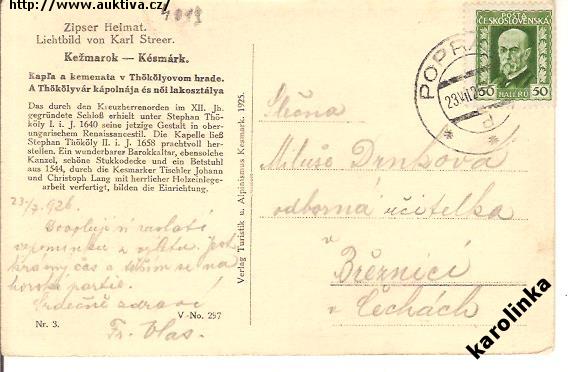 http://www.auktiva.cz/
4019
Zipser Heimat.
Lichtbild von Karl Streer.
Kežmarok — Késmárk.
Kapľa a kemenata v Thökölyovom hrade.
A Thökölyvár kápolnája és női lakosztálya
Das durch den Kreuzherrenorden im XII. Jh.
gegründete Schloß erhielt unter Stephan Thö-
köly I. i. J. 1640 seine jetzige Gestalt in ober-
ungarischem Renaissancestil. Die Kapelle ließ
Stephan Thököly II. i. J. 1658 prachtvoll her-
stellen. Ein wunderbarer Barokkaltar, ebensolche
Kanzel, schöne Stukkodecke und ein Betstuhl
aus 1544, durch die Kesmarker Tischler Johann
und Christoph Lang mit herrlicher Holzeinlege-
arbeit verfertigt, bilden die Einrichtung.
23/7. 926.
si zaslati
vzpomínku z výletu. Jest
krásný čas a těším se na
horské partie.
Srdečně zdraví
Fr. Vlas.
V-No. 257
Nr. 3.
Verlag Turistik u. Alpinismus Kesmark. 1925.
POŠTA
ČESKOSLOVENSKÁ
50 HALÉŘŮ 50
POPRAD
23.VII.26
Slečna
Miluše Drnková
odborná učitelka
v
Březnici
v Čechách
karolinka